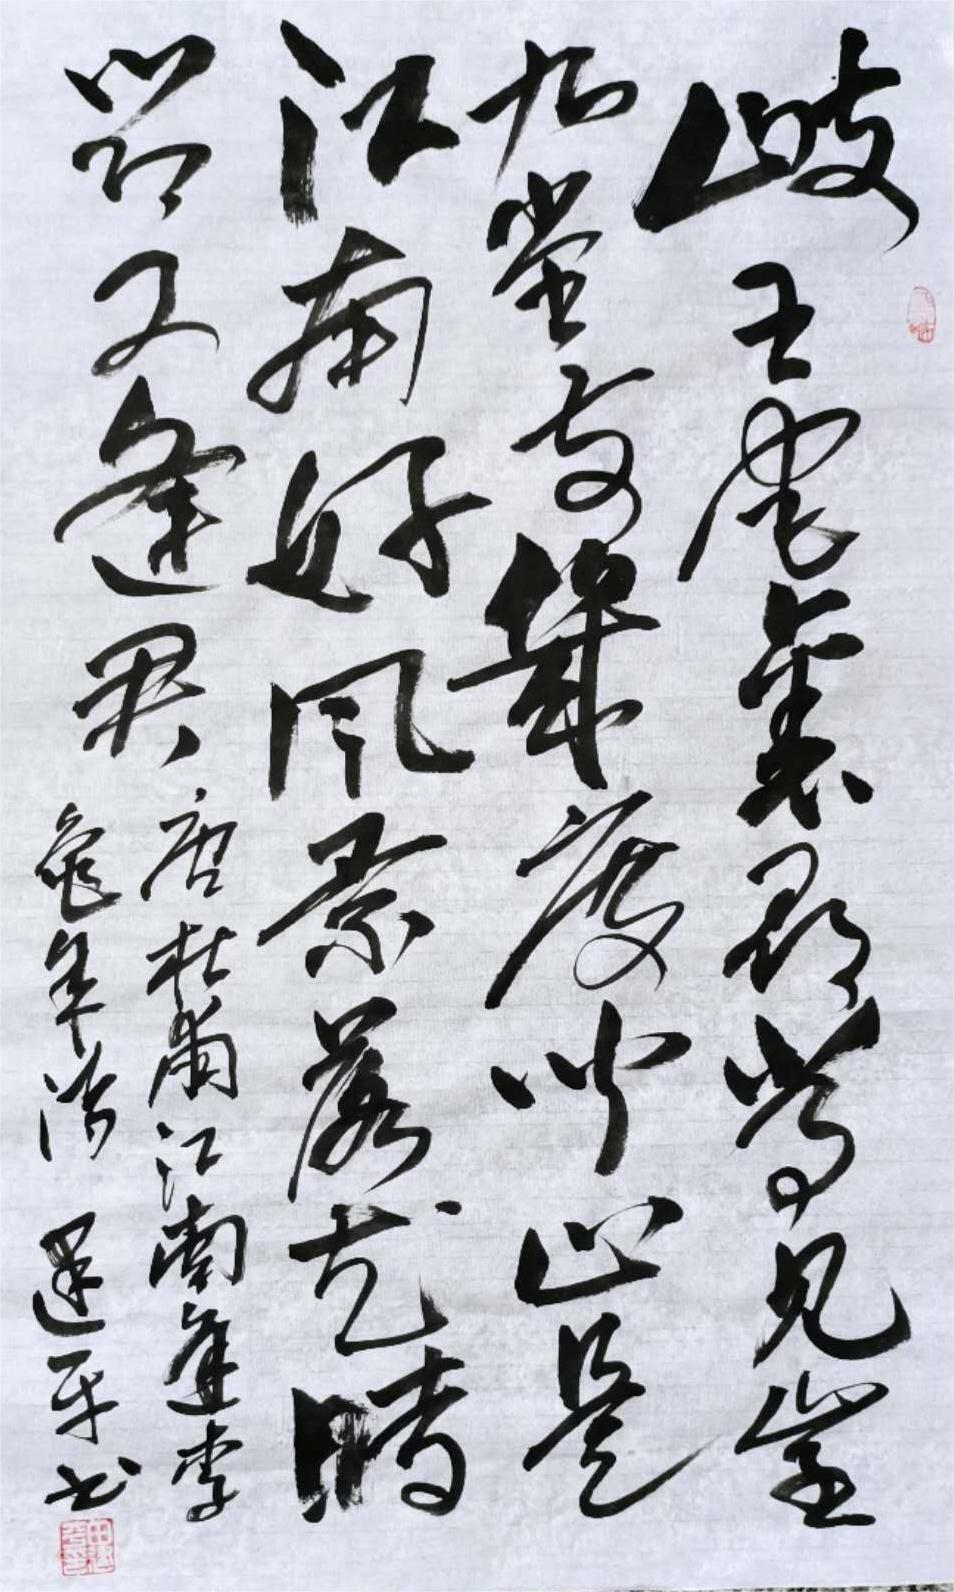 岐王宅裏尋常見崔
九堂前幾度聞正是
江南好風景落花時
節又逢君
唐杜甫江南逢李
龜年詩 運平书